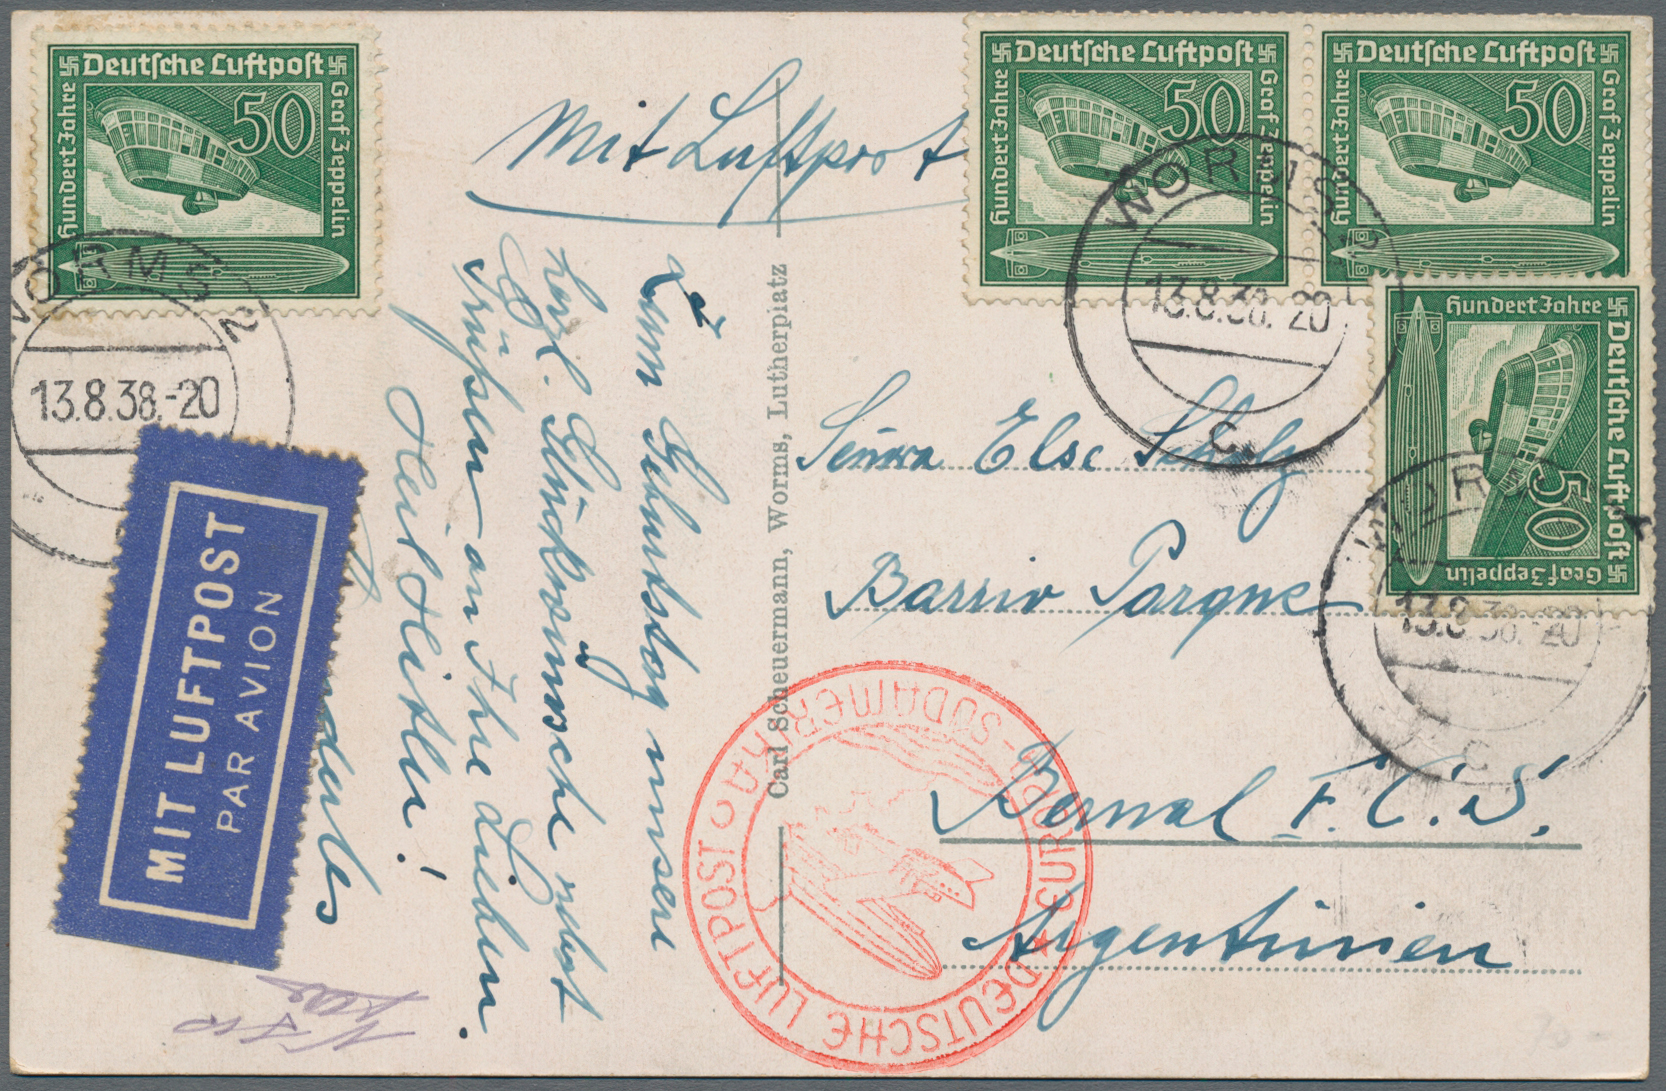 Deutsche Luftpost
Hundert Jahre
50
Graf Zeppelin
Deutsche Luftpost
Hundert Jahre
50
Graf Zeppelin
Deutsche Luftpost
Hundert Jahre
50
Graf Zeppelin
Deutsche Luftpost
Hundert Jahre
50
Graf Zeppelin
Mit Luftpost
WORMS 2
13.8.38.-20
WORMS 2
13.8.38.-20
c
WORMS
13.8.38.-20
c
MIT LUFTPOST
PAR AVION
Zum Geburtstag unsere
herzl. Glückwünsche nebst
Grüßen an Ihre Lieben.
Heil Hitler!
Carl Scheuermann, Worms, Lutherplatz
Else Scholz
Barrio Parque
Bernal F.C.S.
Argentinien
DEUTSCHE LUFTPOST
EUROPA-SÜDAMERIKA